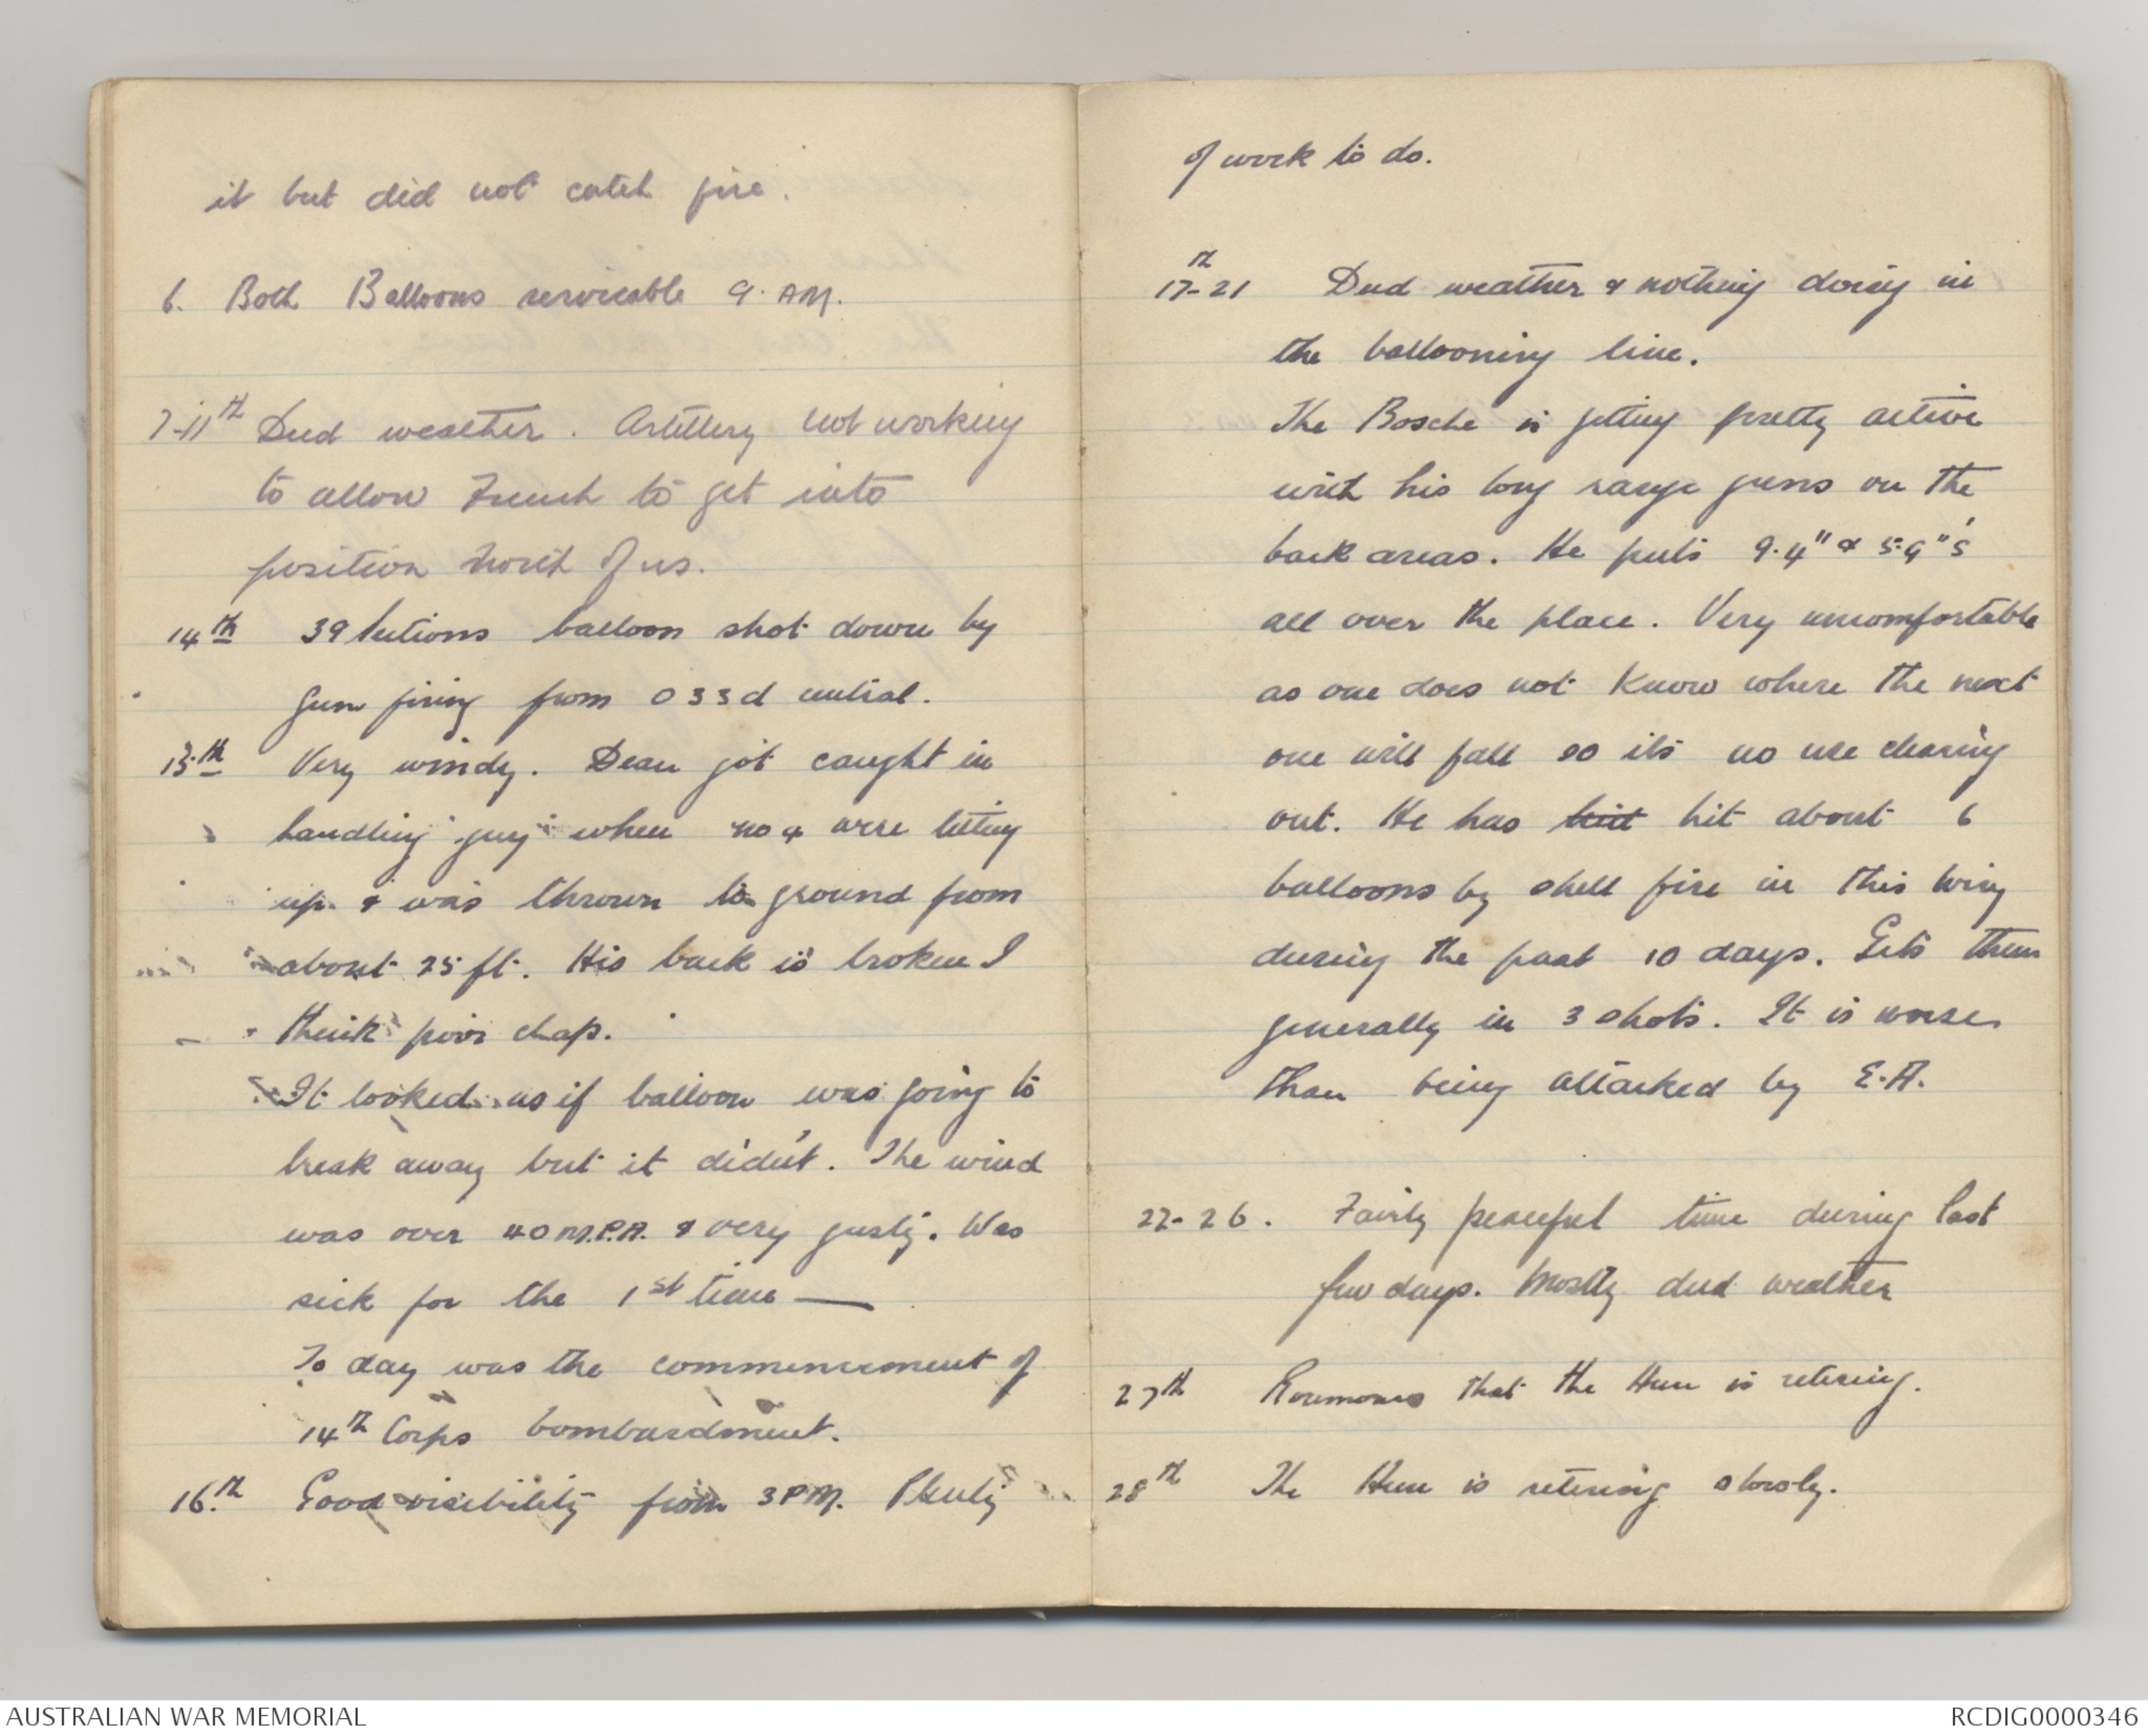 it but did not catch fire.
6. Both Balloons servicable 9. AM.
7-11th Dud weather. Artillery not working
to allow French to get into
position North of us.
14th 39 Sections balloon shot down by
gun firing from O 33d central.
15th Very windy. Dean got caught in
handling "guy" when no 4 were letting
up & was thrown to ground from
about 25 ft. His back is broken I
think poor chap.
It looked as if balloon was going to
break away but it didn't. The wind
was over 40 M.P.H. & very gusty. Was
sick for the 1st time —
To day was the commencement of
14th Corps bombardment.
16.th Good visibility from 3 PM. Plenty
of work to do.
17th-21 Dud weather & nothing doing in
the ballooning line.
The Bosche is getting pretty active
with his long range guns on the
back areas. He puts 9.4" & 5.9"s
all over the place. Very uncomfortable
as one does not know where the next
one will fall so its no use clearing
out. He has hit about 6
balloons by shell fire in this wing
during the past 10 days. Gets them
generally in 3 shots. It is worse
than being attacked by E.A.
22-26. Fairly peaceful time during last
few days. Mostly dud weather
27th Roumours that the Hun is retiring.
28th The Hun is retiring slowly.
AUSTRALIAN WAR MEMORIAL
RCDIG0000346